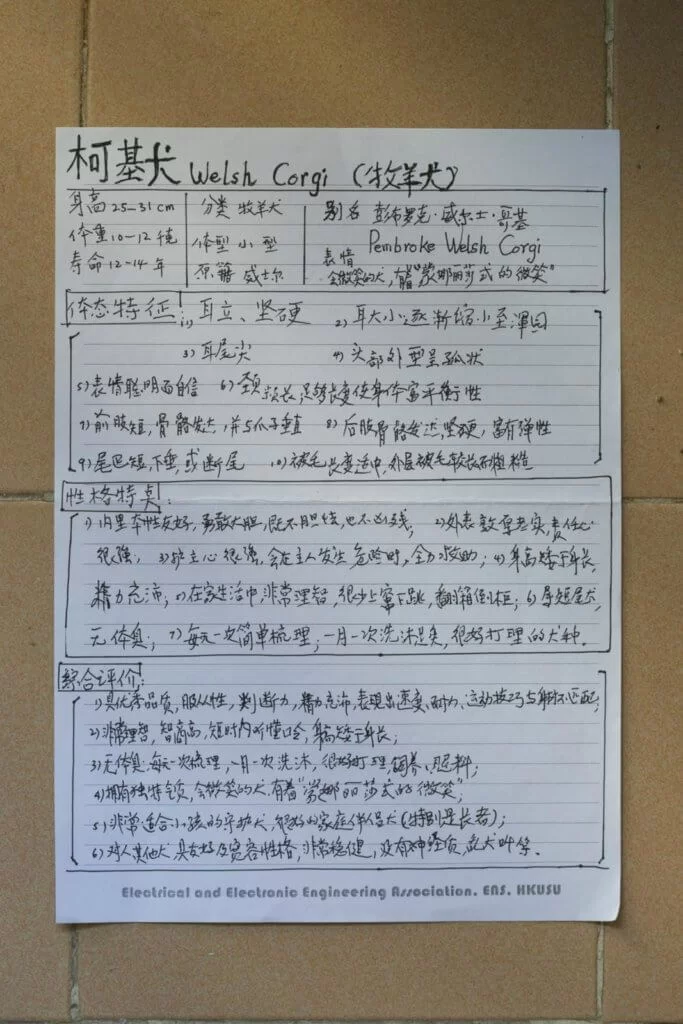 柯基犬 Welsh Corgi (牧羊犬)
身高 25–31 cm 分类 牧羊犬 别名 彭布罗克·威尔士·哥基
体重 10–12 kg 体型 小型 Pembroke Welsh Corgi
寿命 12–14 年 原籍 威尔士 表情 会微笑的犬,有着"蒙娜丽莎式的微笑"
体态特征: 1) 耳立、坚硬 2) 耳大小逐渐缩小至浑圆
3) 耳尾尖 4) 头部外型呈弧状
5) 表情聪明而自信 6) 颈较长,足够长度使身体富平衡性
7) 前肢短,骨骼发达,并与爪子垂直 8) 后肢骨骼发达,坚硬,富有弹性
9) 尾巴短,下垂,或断尾 10) 被毛长度适中,外层被毛较长而粗糙
性格特点:
1) 内里本性友好,勇敢大胆,既不胆怯,也不凶残; 2) 外表敦厚老实,责任心
很强, 3) 护主心很强,会在主人发生危险时,全力救助; 4) 身高矮于身长,
精力充沛, 5) 在家生活中,非常理智,很少上窜下跳,翻箱倒柜; 6) 属短尾犬,
无体臭; 7) 每元一次简单梳理,一月一次洗沐足矣,很好打理的犬种.
綜合评价:
1) 具优秀品质,服从性,判断力,精力充沛,表现出速度、耐力、运动技巧与身材不匹配;
2) 非常理智,智商高,短时内听懂口令,身高矮于身长;
3) 无体臭,每元一次梳理,一月一次洗沐,很好打理,饲养
4) 拥有独特 会微笑的犬,有着"蒙娜丽莎式的微笑";
5) 非常适合小孩的守护犬,很好的家庭伴侣犬(特别是长者);
6) 对人其他犬具友好及宽容性格,非常稳健,没有神经质,乱犬吠等.
Electrical and Electronic Engineering Association. ENS. HKUSU